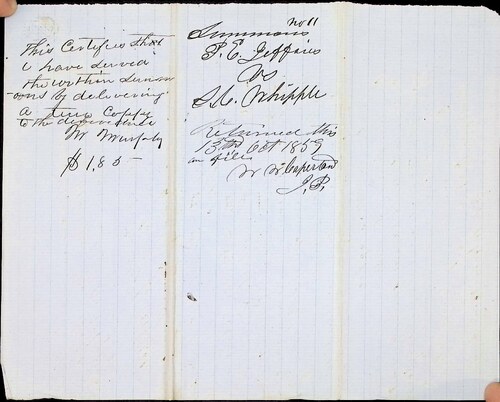 This Certifies that
i have served
the within Summ
-ons by delivering
a true Coppy
to the
W Murphy
$1.85-
No 11
Summons
P. E. Jeffries
vs
S. C. Whipple
Returned this
13th Oct 1859
on files
W W Caperton
J. P.